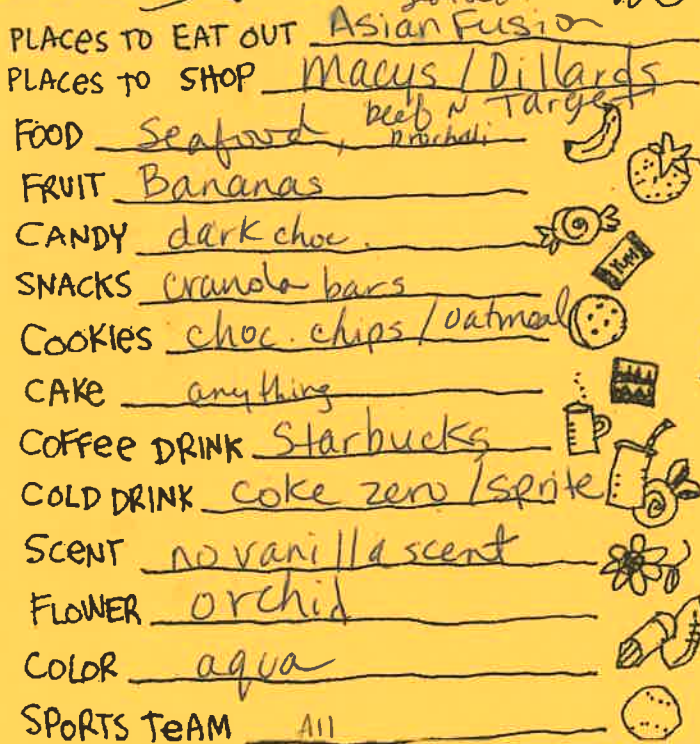 PLACES TO EAT OUT Asian Fusion
PLACES TO SHOP Macys / Dillards
Target
FOOD Seafood, beef N
brochali
FRUIT Bananas
CANDY dark choc.
SNACKS cranola bars
COOKIES choc. chips / oatmeal
CAKE anything
COFFEE DRINK Starbucks
COLD DRINK coke zero / sprite
SCENT no vanilla scent
FLOWER orchid
COLOR aqua
SPORTS TEAM All